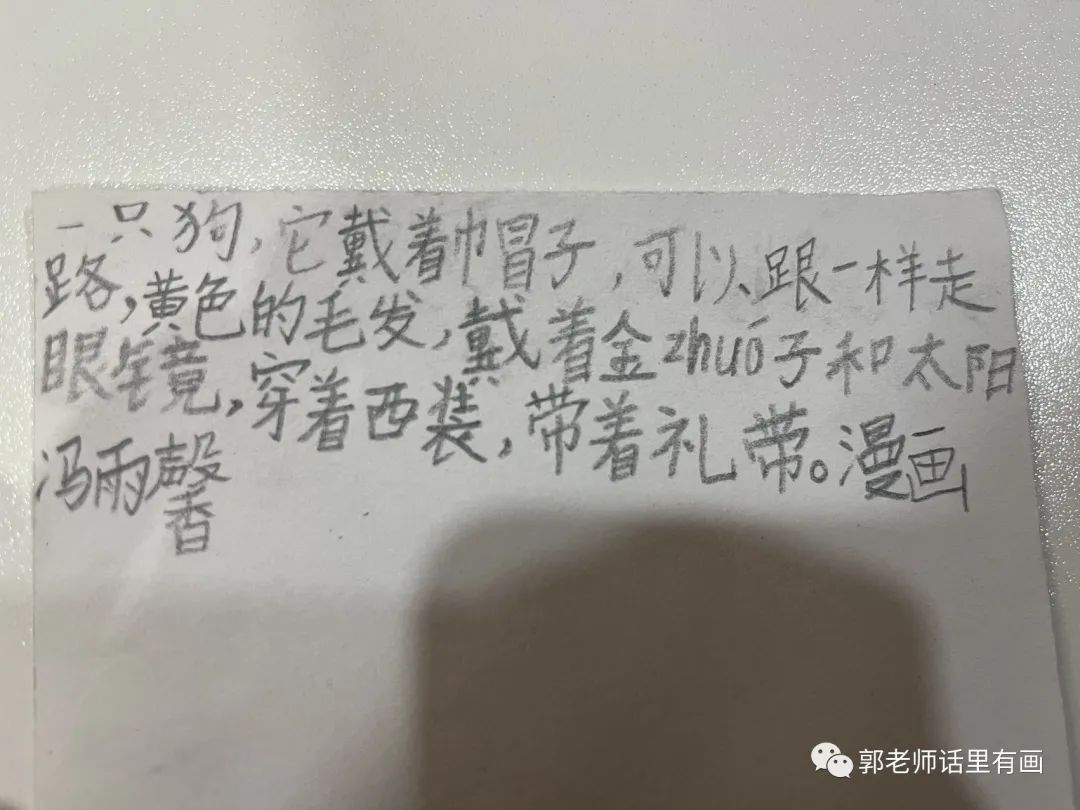 一只狗，它戴着巾帽子，可以跟一样走
路，黄色的毛发，戴着金zhuó子和太阳
眼镜，穿着西装，带着礼带。漫画
冯雨馨
郭老师话里有画